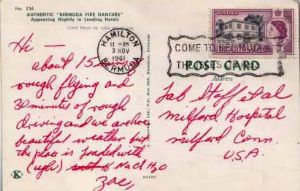 No. 226
AUTHENTIC "BERMUDA FIRE DANCERS"
Appearing Nightly in Leading Hotels
HAMILTON
11 - AM
3 NOV
1961
BERMUDA
COME TO BERMUDA
POST CARD
Address
Hi —
about 15
rough flying and
20 minutes of rough
driving and we arrived
beautiful weather but
the place is loaded with
(ugh) NaCl H2O
Zac,
Lab Staff
Milford Hospital
Milford Conn.
U.S.A.
K